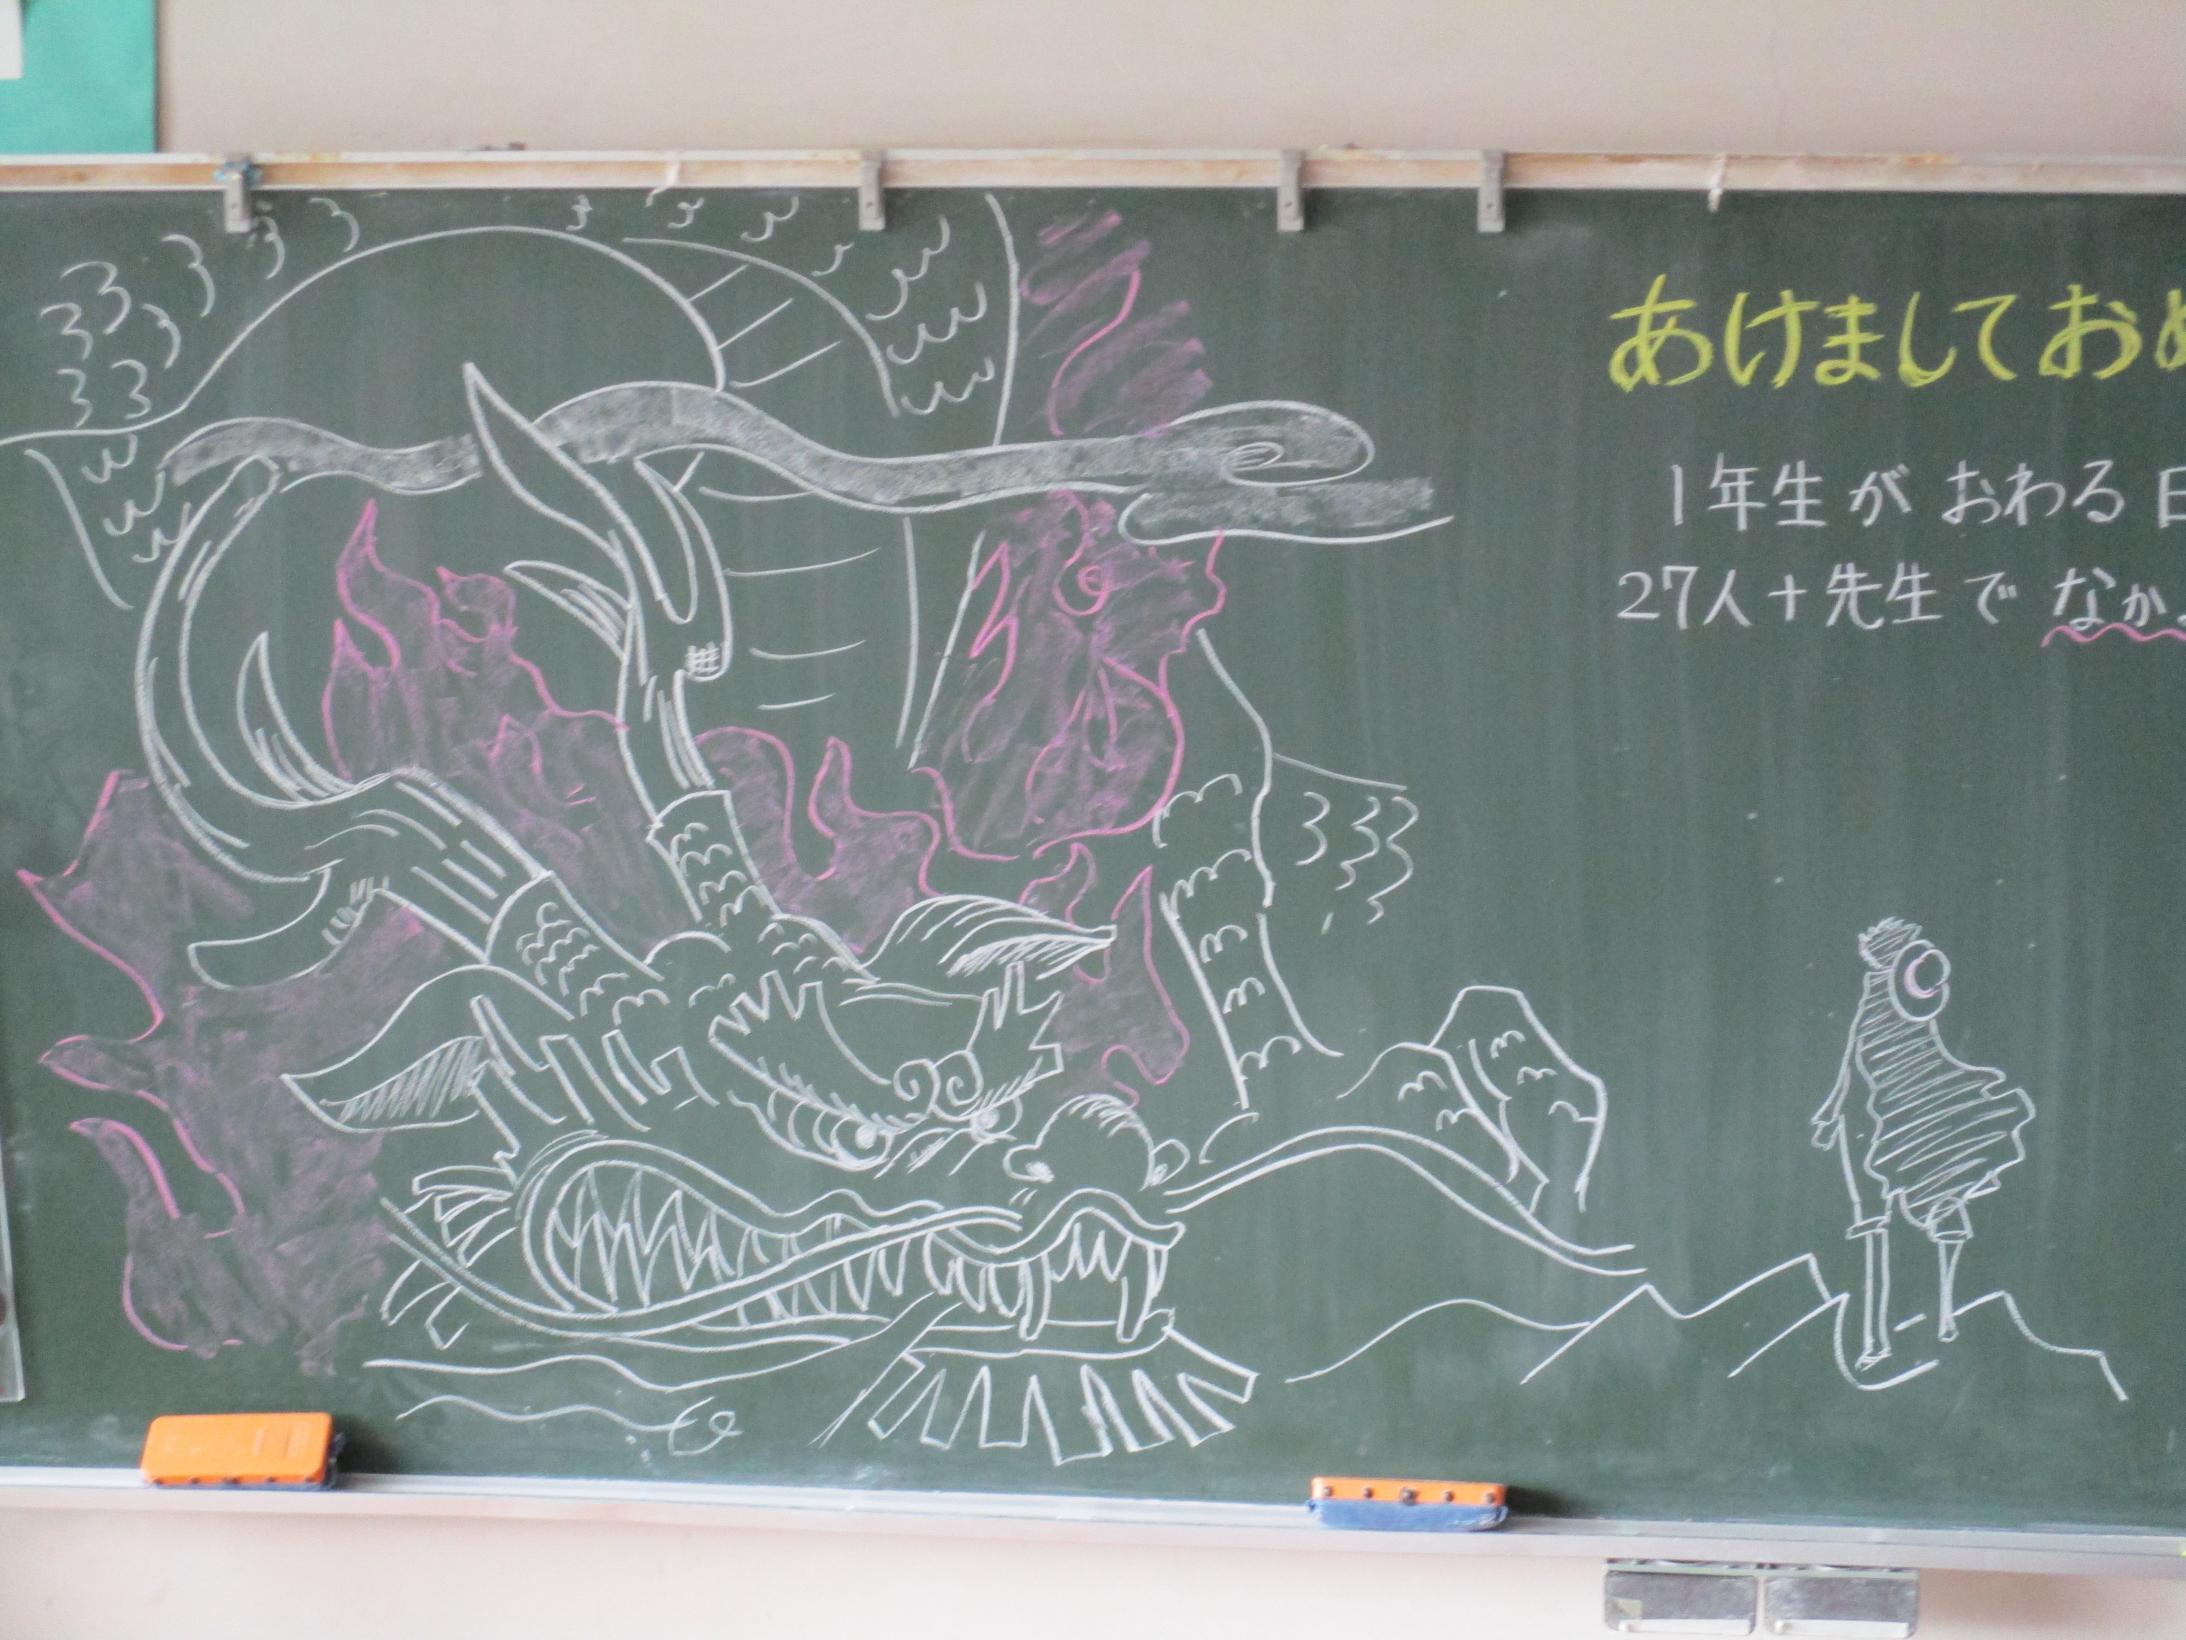 あけましておめ
1年生が おわる 日
27人+先生で なか